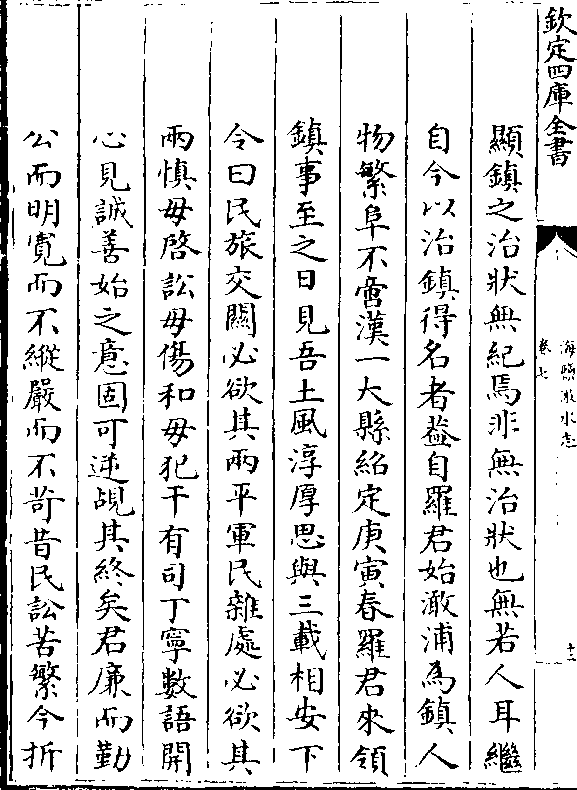 欽定四庫全書
海鹽澉水志
卷七
十二
顯鎮之治狀無紀焉非無治狀也無若人耳繼
自今以治鎮得名者葢自羅君始澉浦為鎮人
物繁阜不啻漢一大縣紹定庚寅春羅君來領
鎮事至之日見吾土風淳厚思與三載相安下
令曰民旅交關必欲其兩平軍民雜處必欲其
兩慎毋啓訟毋傷和毋犯干有司丁寧數語開
心見誠善始之意固可逆覘其終矣君廉而勤
公而明寛而不縱嚴而不苛昔民訟苦繁今折